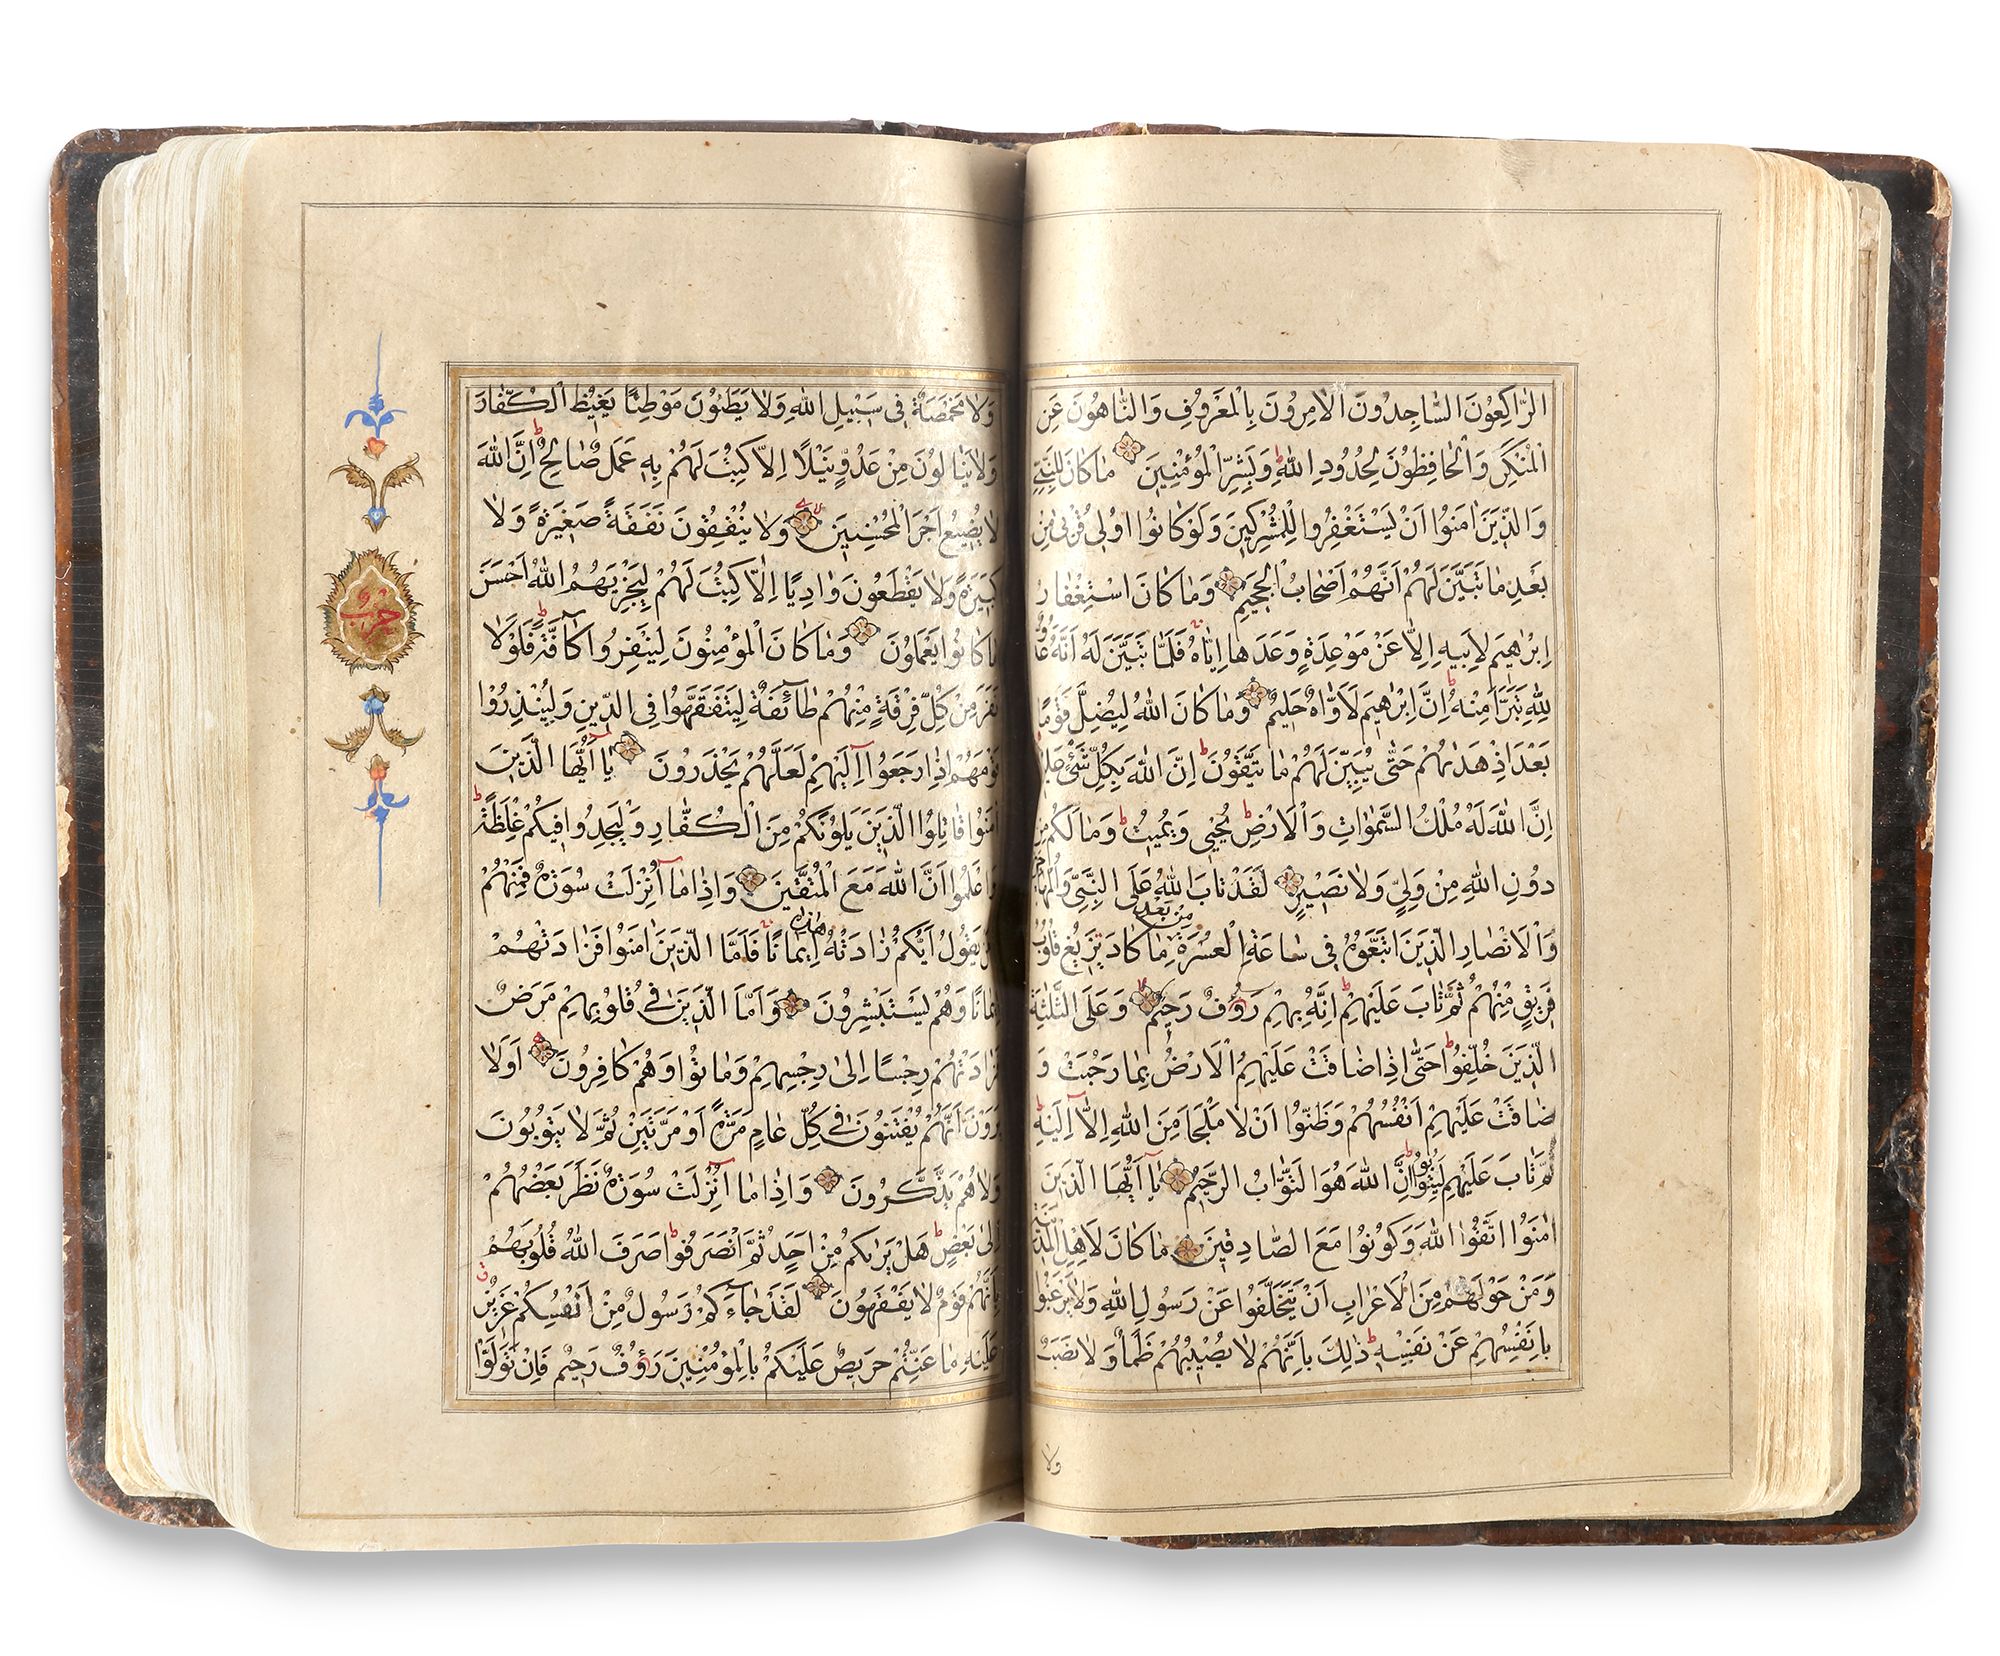 الرَّاكِعُونَ السَّاجِدُونَ الْاٰمِرُونَ بِالْمَعْرُوفِ وَالنَّاهُونَ عَنِ
الْمُنْكَرِ وَالْحَافِظُونَ لِحُدُودِ اللّٰهِ ط وَبَشِّرِ الْمُؤْمِنِينَ مَا كَانَ لِلنَّبِيِّ
وَالَّذِينَ اٰمَنُوا اَنْ يَسْتَغْفِرُوا لِلْمُشْرِكِينَ وَلَوْ كَانُوا اُولِي قُرْبٰى مِنْ
بَعْدِ مَا تَبَيَّنَ لَهُمْ اَنَّهُمْ اَصْحَابُ الْجَحِيمِ وَمَا كَانَ اسْتِغْفَارُ
اِبْرٰهِيمَ لِاَبِيهِ اِلَّا عَنْ مَوْعِدَةٍ وَعَدَهَا اِيَّاهُ فَلَمَّا تَبَيَّنَ لَهُ اَنَّهُ عَدُوٌّ
لِلّٰهِ تَبَرَّاَ مِنْهُ ط اِنَّ اِبْرٰهِيمَ لَاَوَّاهٌ حَلِيمٌ وَمَا كَانَ اللّٰهُ لِيُضِلَّ قَوْمًا
بَعْدَ اِذْ هَدٰىهُمْ حَتّٰى يُبَيِّنَ لَهُمْ مَا يَتَّقُونَ ط اِنَّ اللّٰهَ بِكُلِّ شَيْءٍ عَلِيمٌ
اِنَّ اللّٰهَ لَهُ مُلْكُ السَّمٰوَاتِ وَالْاَرْضِ ط يُحْيِي وَيُمِيتُ ط وَمَا لَكُمْ مِنْ
دُونِ اللّٰهِ مِنْ وَلِيٍّ وَلَا نَصِيرٍ لَقَدْ تَابَ اللّٰهُ عَلَى النَّبِيِّ وَالْمُهَاجِرِينَ
وَالْاَنْصَارِ الَّذِينَ اتَّبَعُوهُ فِي سَاعَةِ الْعُسْرَةِ مِنْ بَعْدِ مَا كَادَ يَزِيغُ قُلُوبُ
فَرِيقٍ مِنْهُمْ ثُمَّ تَابَ عَلَيْهِمْ ط اِنَّهُ بِهِمْ رَؤُفٌ رَحِيمٌ وَعَلَى الثَّلٰثَةِ
الَّذِينَ خُلِّفُوا ط حَتّٰى اِذَا ضَاقَتْ عَلَيْهِمُ الْاَرْضُ بِمَا رَحُبَتْ وَ
ضَاقَتْ عَلَيْهِمْ اَنْفُسُهُمْ وَظَنُّوا اَنْ لَا مَلْجَاَ مِنَ اللّٰهِ اِلَّا اِلَيْهِ ط
ثُمَّ تَابَ عَلَيْهِمْ لِيَتُوبُوا ط اِنَّ اللّٰهَ هُوَ التَّوَّابُ الرَّحِيمُ يَا اَيُّهَا الَّذِينَ
اٰمَنُوا اتَّقُوا اللّٰهَ وَكُونُوا مَعَ الصَّادِقِينَ مَا كَانَ لِاَهْلِ الْمَدِينَةِ
وَمَنْ حَوْلَهُمْ مِنَ الْاَعْرَابِ اَنْ يَتَخَلَّفُوا عَنْ رَسُولِ اللّٰهِ وَلَا يَرْغَبُوا
بِاَنْفُسِهِمْ عَنْ نَفْسِهِ ط ذٰلِكَ بِاَنَّهُمْ لَا يُصِيبُهُمْ ظَمَاٌ وَلَا نَصَبٌ
ولا
وَلَا مَخْمَصَةٌ فِي سَبِيلِ اللّٰهِ وَلَا يَطَئُونَ مَوْطِئًا يَغِيظُ الْكُفَّارَ
وَلَا يَنَالُونَ مِنْ عَدُوٍّ نَيْلًا اِلَّا كُتِبَ لَهُمْ بِهِ عَمَلٌ صَالِحٌ ط اِنَّ اللّٰهَ
لَا يُضِيعُ اَجْرَ الْمُحْسِنِينَ وَلَا يُنْفِقُونَ نَفَقَةً صَغِيرَةً وَلَا
كَبِيرَةً وَلَا يَقْطَعُونَ وَادِيًا اِلَّا كُتِبَ لَهُمْ لِيَجْزِيَهُمُ اللّٰهُ اَحْسَنَ
مَا كَانُوا يَعْمَلُونَ وَمَا كَانَ الْمُؤْمِنُونَ لِيَنْفِرُوا كَآفَّةً ط فَلَوْلَا
نَفَرَ مِنْ كُلِّ فِرْقَةٍ مِنْهُمْ طَآئِفَةٌ لِيَتَفَقَّهُوا فِي الدِّينِ وَلِيُنْذِرُوا
قَوْمَهُمْ اِذَا رَجَعُوا اِلَيْهِمْ لَعَلَّهُمْ يَحْذَرُونَ يَا اَيُّهَا الَّذِينَ
اٰمَنُوا قَاتِلُوا الَّذِينَ يَلُونَكُمْ مِنَ الْكُفَّارِ وَلْيَجِدُوا فِيكُمْ غِلْظَةً ط
وَاعْلَمُوا اَنَّ اللّٰهَ مَعَ الْمُتَّقِينَ وَاِذَا مَا اُنْزِلَتْ سُورَةٌ فَمِنْهُمْ
مَنْ يَقُولُ اَيُّكُمْ زَادَتْهُ هٰذِهِ اِيمَانًا فَاَمَّا الَّذِينَ اٰمَنُوا فَزَادَتْهُمْ
اِيمَانًا وَهُمْ يَسْتَبْشِرُونَ وَاَمَّا الَّذِينَ فِي قُلُوبِهِمْ مَرَضٌ
فَزَادَتْهُمْ رِجْسًا اِلٰى رِجْسِهِمْ وَمَاتُوا وَهُمْ كَافِرُونَ اَوَلَا
يَرَوْنَ اَنَّهُمْ يُفْتَنُونَ فِي كُلِّ عَامٍ مَرَّةً اَوْ مَرَّتَيْنِ ثُمَّ لَا يَتُوبُونَ
وَلَا هُمْ يَذَّكَّرُونَ وَاِذَا مَا اُنْزِلَتْ سُورَةٌ نَظَرَ بَعْضُهُمْ
اِلٰى بَعْضٍ ط هَلْ يَرٰىكُمْ مِنْ اَحَدٍ ثُمَّ انْصَرَفُوا ط صَرَفَ اللّٰهُ قُلُوبَهُمْ
بِاَنَّهُمْ قَوْمٌ لَا يَفْقَهُونَ لَقَدْ جَاءَكُمْ رَسُولٌ مِنْ اَنْفُسِكُمْ عَزِيزٌ
عَلَيْهِ مَا عَنِتُّمْ حَرِيصٌ عَلَيْكُمْ بِالْمُؤْمِنِينَ رَؤُفٌ رَحِيمٌ فَاِنْ تَوَلَّوْا
حزب